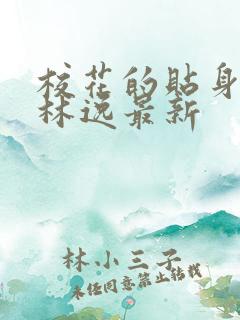 校花的贴身
林逸最新
林小三子
未经同意禁止转载